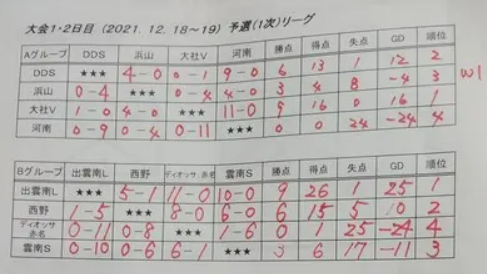 大会1・2日目(2021.12.18〜19)予選(1次)リーグ
Aグループ DDS 浜山 大社V 河南 勝点 得点 失点 GD 順位
DDS ★★★ 4-0 0-1 9-0 6 13 1 12 2
浜山 0-4 ★★★ 0-4 4-0 3 4 8 -4 3
大社V 1-0 4-0 ★★★ 11-0 9 16 0 16 1
河南 0-9 0-4 0-11 ★★★ 0 0 24 -24 4
Bグループ 出雲南L 西野 ディオッサ.赤名 雲南S 勝点 得点 失点 GD 順位
出雲南L ★★★ 5-1 11-0 10-0 9 26 1 25 1
西野 1-5 ★★★ 8-0 6-0 6 15 5 10 2
ディオッサ 赤名 0-11 0-8 ★★★ 1-6 0 1 25 -24 4
雲南S 0-10 0-6 6-1 ★★★ 3 6 17 -11 3